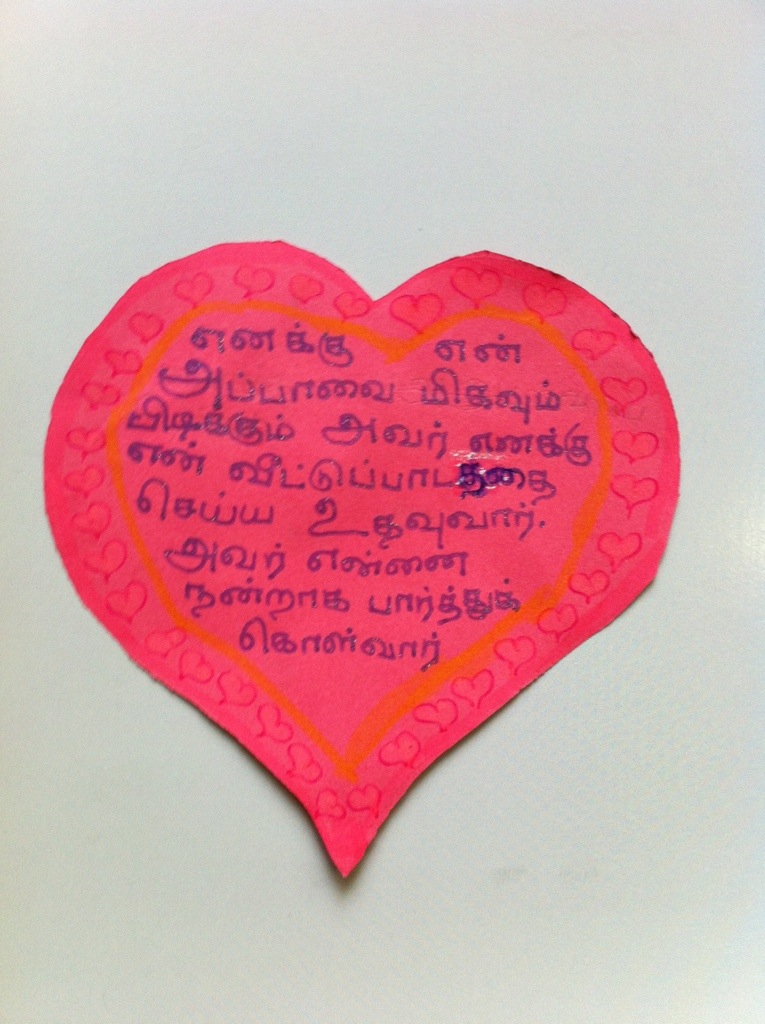 எனக்கு என்
அப்பாவை மிகவும்
பிடிக்கும் அவர் எனக்கு
என் வீட்டுப்பாடத்தை
செய்ய உதவுவார்.
அவர் என்னை
நன்றாக பார்த்துக்
கொள்வார்